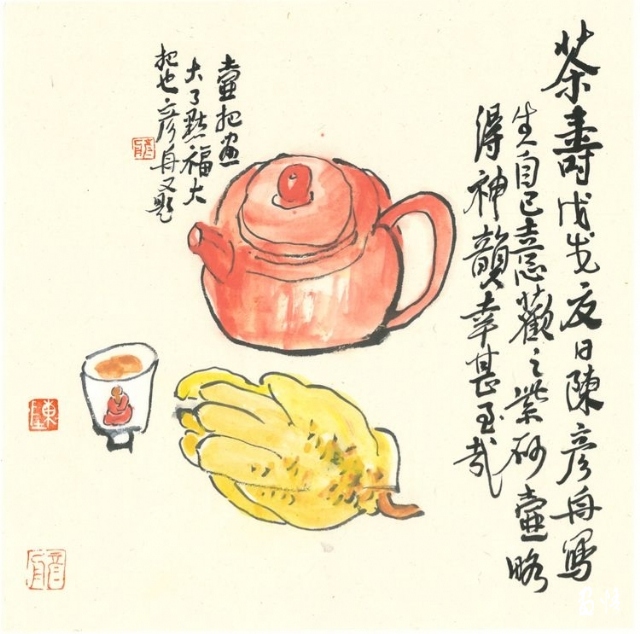 茶壽戊戌夏日陳彦舟寫
生自己喜歡之紫砂壺略
得神韻幸甚至哉
壺把畫
大了點福大
把也彦舟又題